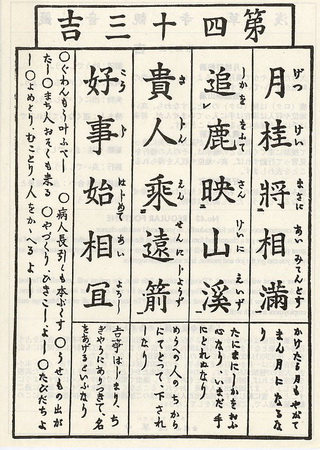 第四十三吉
月桂將相滿
げつ けい まさに あい みてんとす
かけたる月もやがて
まん月になるな
り
追鹿映山溪
しかを をふて さん けいに えいず
たにまにしかをおふ
心なり、いまだ手
にとれぬなり
貴人乘遠箭
き にん えん せんに じようず
めうへの人のちから
にてとつて、下され
しなり
好事始相冝
こう じ はじめて あい よろし
吉事はじまり、ち
ぎやうにありつきて、名
をあげるといふなり
○ぐわんもう叶ふべし ○病人長引くも本ぶくす ○うせもの出が
たし ○まち人おそくも来る ○やづくり、ひきこしよし ○たびだちよ
し ○よめとり、むことり、人をかゝへるよし